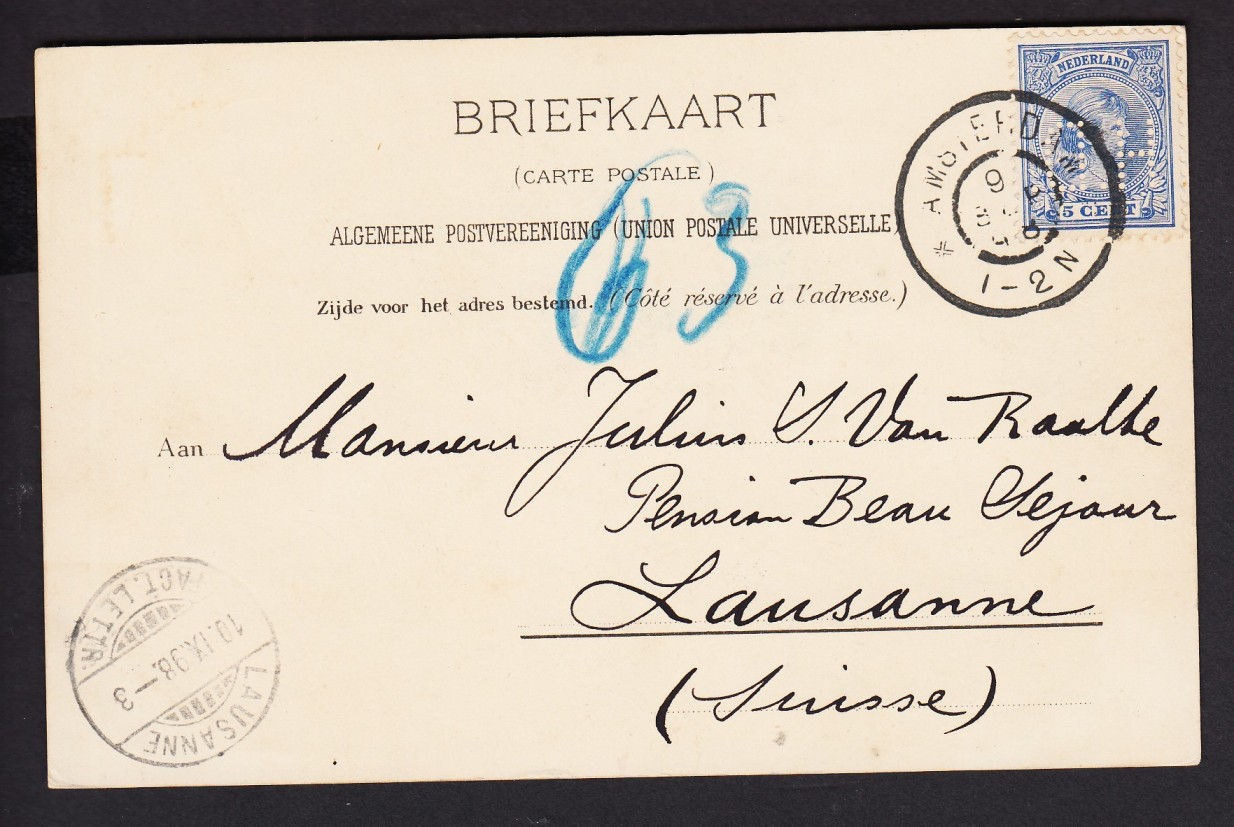 NEDERLAND
5 CENT
AMSTERDAM
9 SEP 98
1-2N
BRIEFKAART
(CARTE POSTALE)
ALGEMEENE POSTVEREENIGING (UNION POSTALE UNIVERSELLE)
Zijde voor het adres bestemd. (Côté réservé à l'adresse.)
3
Aan Monsieur Julius S. Van Raalte
Pension Beau Séjour
Lausanne
(Suisse)
FACT. LETTR.
10.IX.98.–3
LAUSANNE